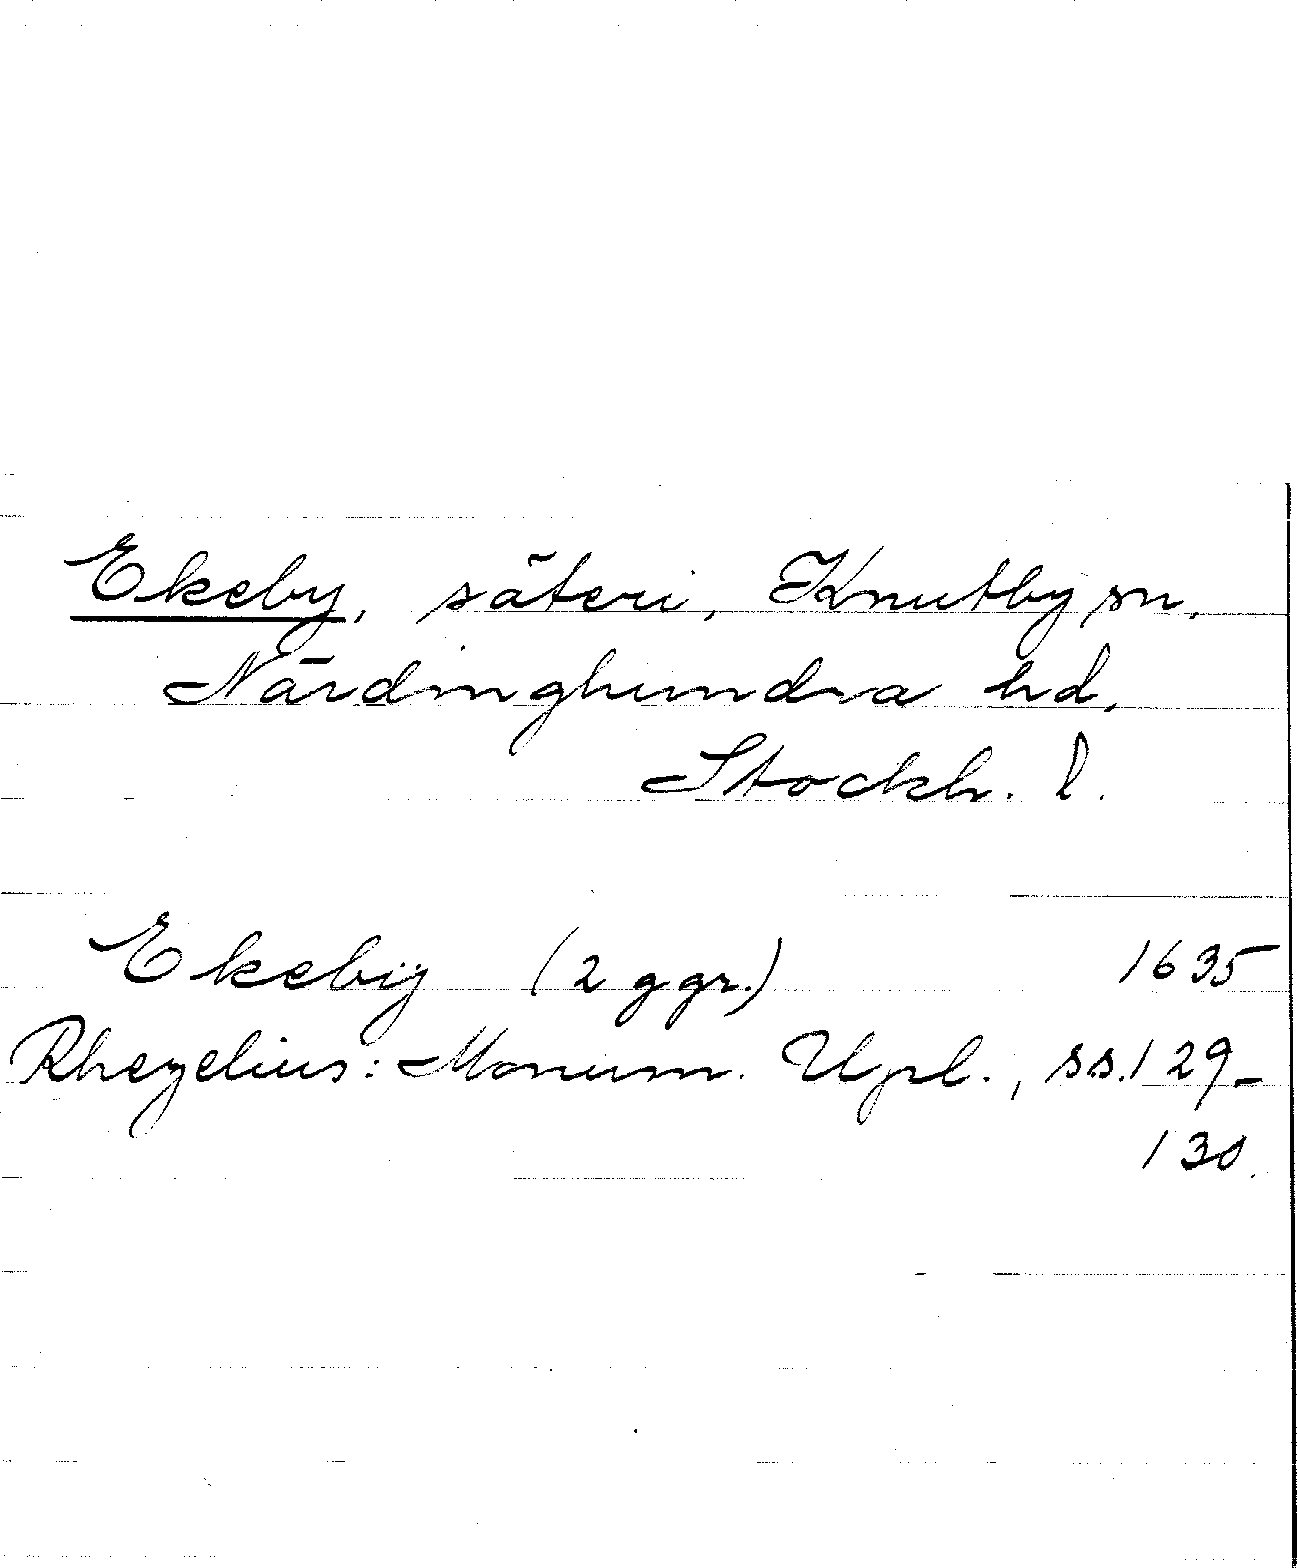 Ekeby, säteri, Knutby sn,
Närdinghundra hd,
Stockh. l.
Ekebÿ (2 ggr.) 1635
Rhezelius: Monum. Upl., ss. 129-
130.